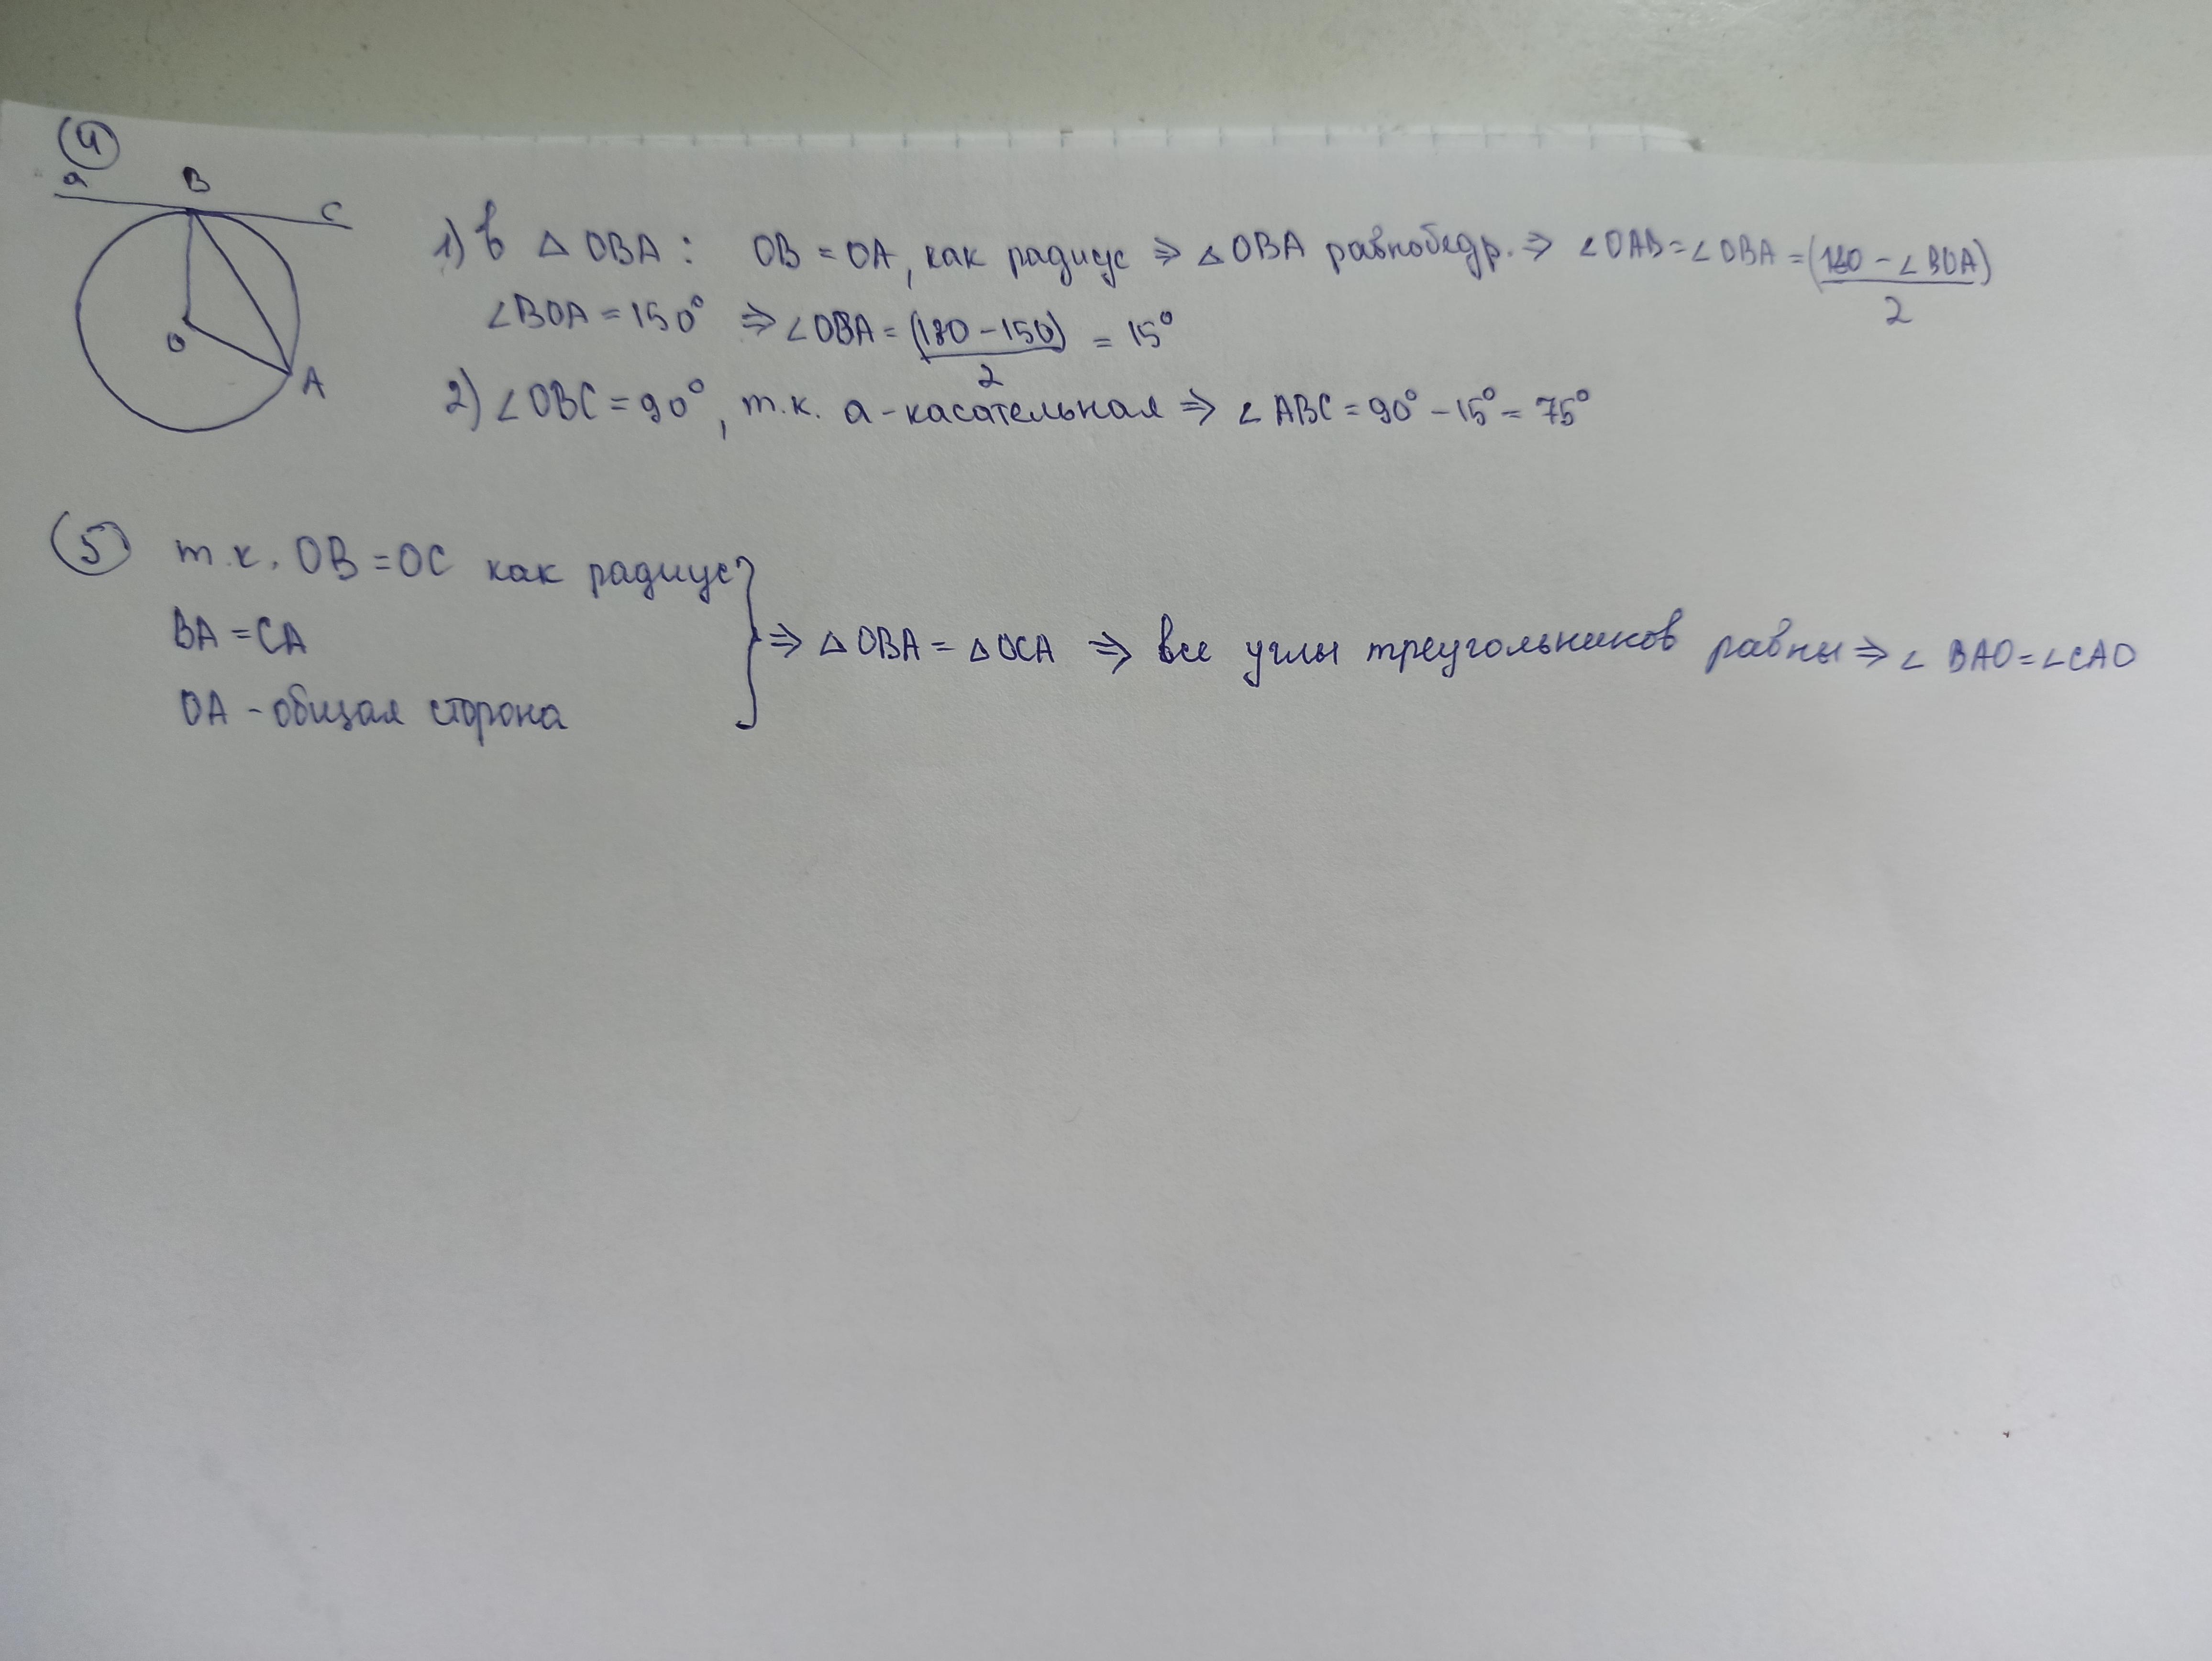 4
a B C
O A
1) в △OBA: OB = OA, как радиус ⇒ △OBA равнобедр. ⇒ ∠OAB = ∠OBA = (180 - ∠BOA)/2
∠BOA = 150° ⇒ ∠OBA = (180 - 150)/2 = 15°
2) ∠OBC = 90°, т.к. a - касательная ⇒ ∠ABC = 90° - 15° = 75°
5 т.к. OB = OC как радиус
BA = CA
OA - общая сторона
} ⇒ △OBA = △OCA ⇒ все углы треугольников равны ⇒ ∠BAO = ∠CAO